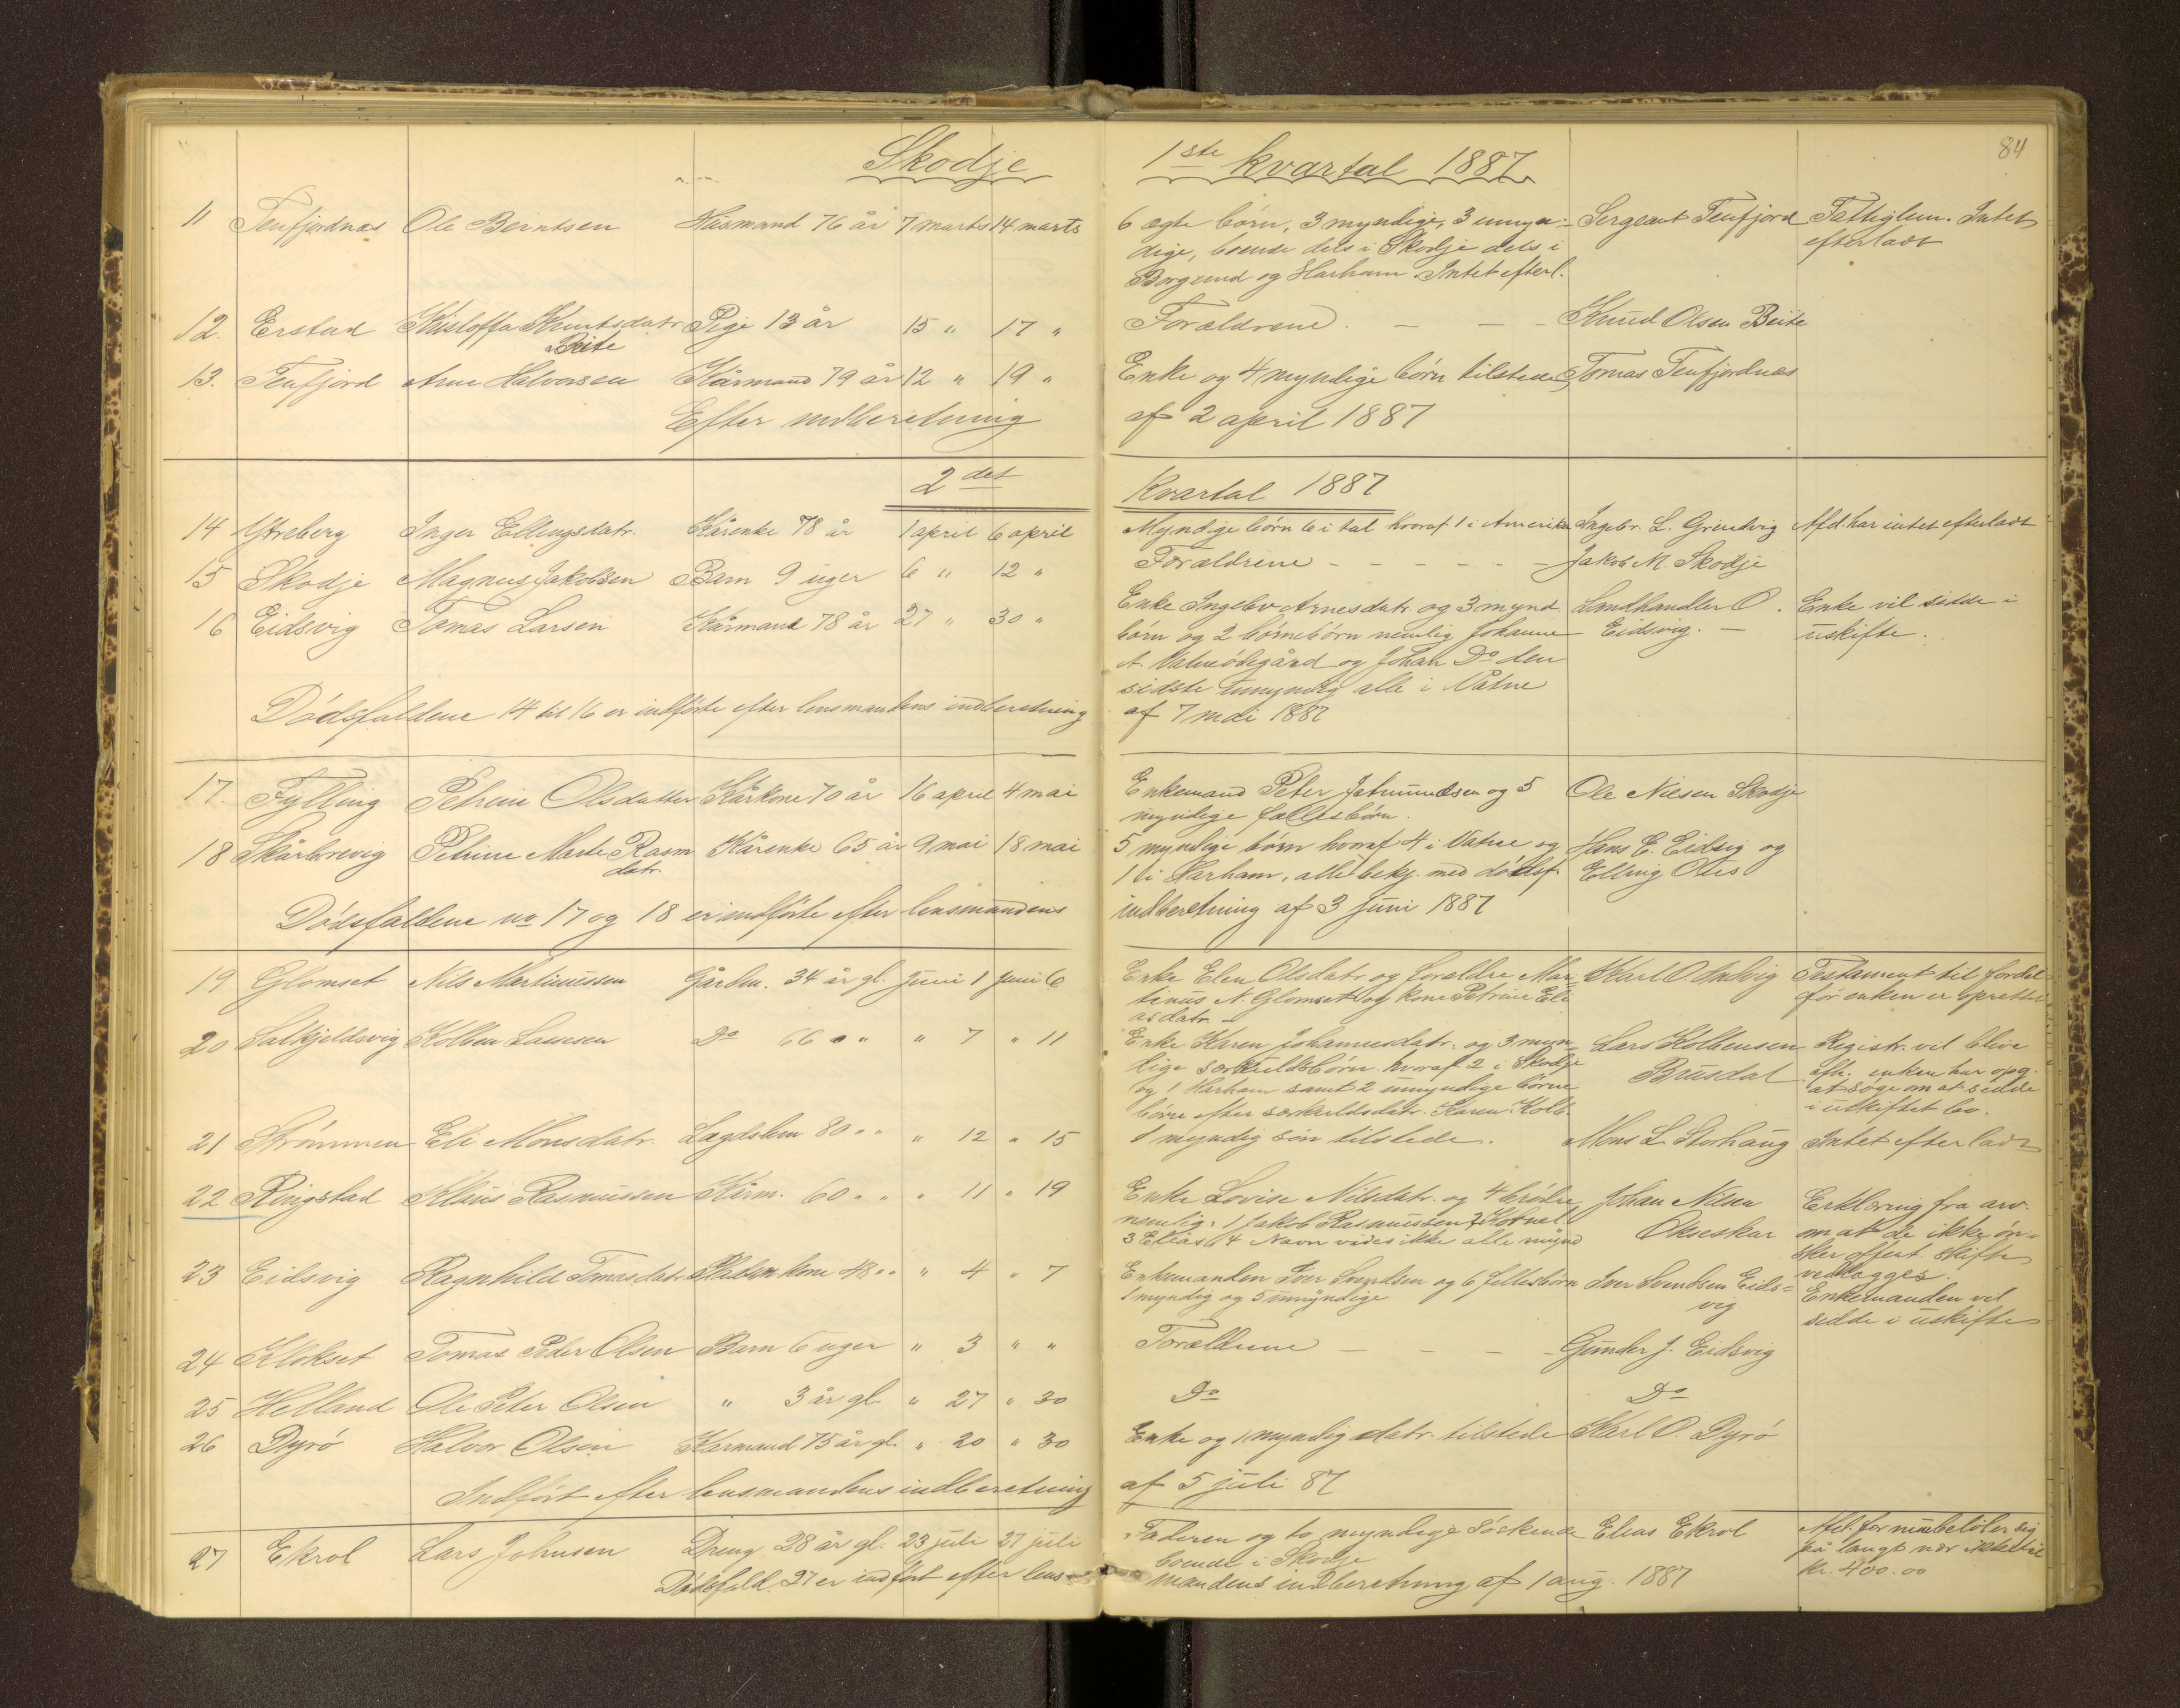 84
Skodje 1ste kvartal 1887.
11 Tenfjordnæs Ole Berntsen Husmand 76 år 7 marts 14 marts 6 ægte børn, 3 myndige, 3 umyn- Sergeant Tenfjord Fattiglem. Intet
dige, boende dels i Skodje dels i efterladt
Borgund og Harham. Intet efterl.
12. Erstad Knutsdatr. Pige 13 år 15 " 17 " Forældrene. — — — Knud Olsen Beite
Beite
13. Tenfjord Arne Halvorsen Kårmand 79 år 12 " 19 " Enke og 4 myndige børn tilstede Tomas Tenfjordnæs
Efter indberetning af 2 april 1887
2det Kvartal 1887
14 Ytreberg Inger Ellingsdatr. Kårenke 78 år 1 april 6 april Myndige børn 6 i tal hvoraf 1 i Amerika Ingebr. L. Grindvig Afd. har intet efterladt
15 Skodje Magnus Jakobsen Barn 9 uger 6 " 12 " Forældrene - - - - - - Jakob M. Skodje
16 Eidsvig Tomas Larsen Kårmand 78 år 27 " 30 " Enke Ingebr Arnesdatr. og 3 mynd. Landhandler O. Enke vil sidde i
børn og 2 børnebørn nemlig Johanne Eidsvig. — uskifte.
A. Vatneødegård og Johan Do den
sidste umyndig alle i Vatne
Dødsfaldene 14 til 16 er indførte efter lensmandens indberetning af 7 mai 1887
17. Fylling Petrine Olsdatter Kårkone 70 år 16 april 4 mai Enkemand Peter Jetmundsen og 5 Ole Nilsen Skodje
myndige fællesbørn.
18 Skårbrevig Petrine Marte Rasm Kårenke 65 år 9 mai 18 mai 5 myndige børn hvoraf 4 i Vatne og Hans E. Eidsvig og
datr. 1 i Harham, alle bekj. med dødsf. Elling Otis
Dødsfaldene no 17 og 18 er indførte efter lensmandens indberetning af 3 juni 1887
19 Glomset Nils Martinussen Gårdm. 34 år gl. Juni 1 Juni 6 Enke Elen Olsdatr og Forældre Mar- Karl O Indvig Testament til fordel
tinus N. Glomset og kone Petrine Eli for enken er oprettet
asdatr. —
20 Solkjeldsvig Kolben Larsen Do 66 " " " 7 " 11 Enke Karen Johannesdatr. og 3 myn- Lars Kolbensen Registr. vil blive
dige særkuldsbørn. hvoraf 2 i Skodje Brusdal afh. enken har opg.
og 1 Harham samt 2 umyndige børne at søge om at sidde
børn efter særkuldsdatr. Karen Kolb. i uskiftet bo.
21 Strømmen Eli Monsdatr. Lægdslem 80 " " " 12 " 15 1 myndig søn tilstede. Mons L. Storhaug Intet efterladt
22 Ringstad Klaus Rasmussen Kårm. 60 " " " 11 " 19 Enke Lovise Nilsdatr. og 4 brødre Johan Nilsen Erklæring fra arv.
nemlig: 1 Jakob Rasmussen 2 Kornel. Okseskar om at de ikke øn-
3 Elias 4 Navn vides ikke alle mynd sker offent. skifte
vedlægges.
23 Eidsvig Ragnhild Tomasdatr. kone 48 " " " 4 " 7 Enkemanden Iver Svendsen og 6 fællesbørn Iver Svendsen Eids= Enkemanden vil
1 myndig og 5 umyndige vig sidde i uskifte
24 Klokset Tomas Peder Olsen Barn 6 uger " 3 " " Forældrene — - - - Gunder J. Eidsvig
25 Helland Ole Peter Olsen " 3 år gl. " 27 " 30 Do Do
26 Dyrø Halvor Olsen Karmand 75 år gl. " 20 " 30 Enke og 1 myndig datr. tilstede Karl O. Dyrø
Indført efter lensmandens indberetning af 5 juli 87
27 Ekrol Lars Johnsen Dreng 28 år gl. 23 juli 27 juli Faderen og to myndige søskende Elias Ekrol Afd. formue beløber sig
boende i Skodje på langt nær ikke til
Dødsfald 27 er indført efter lens- mandens indberetning af 1 aug. 1887 kr. 400.00